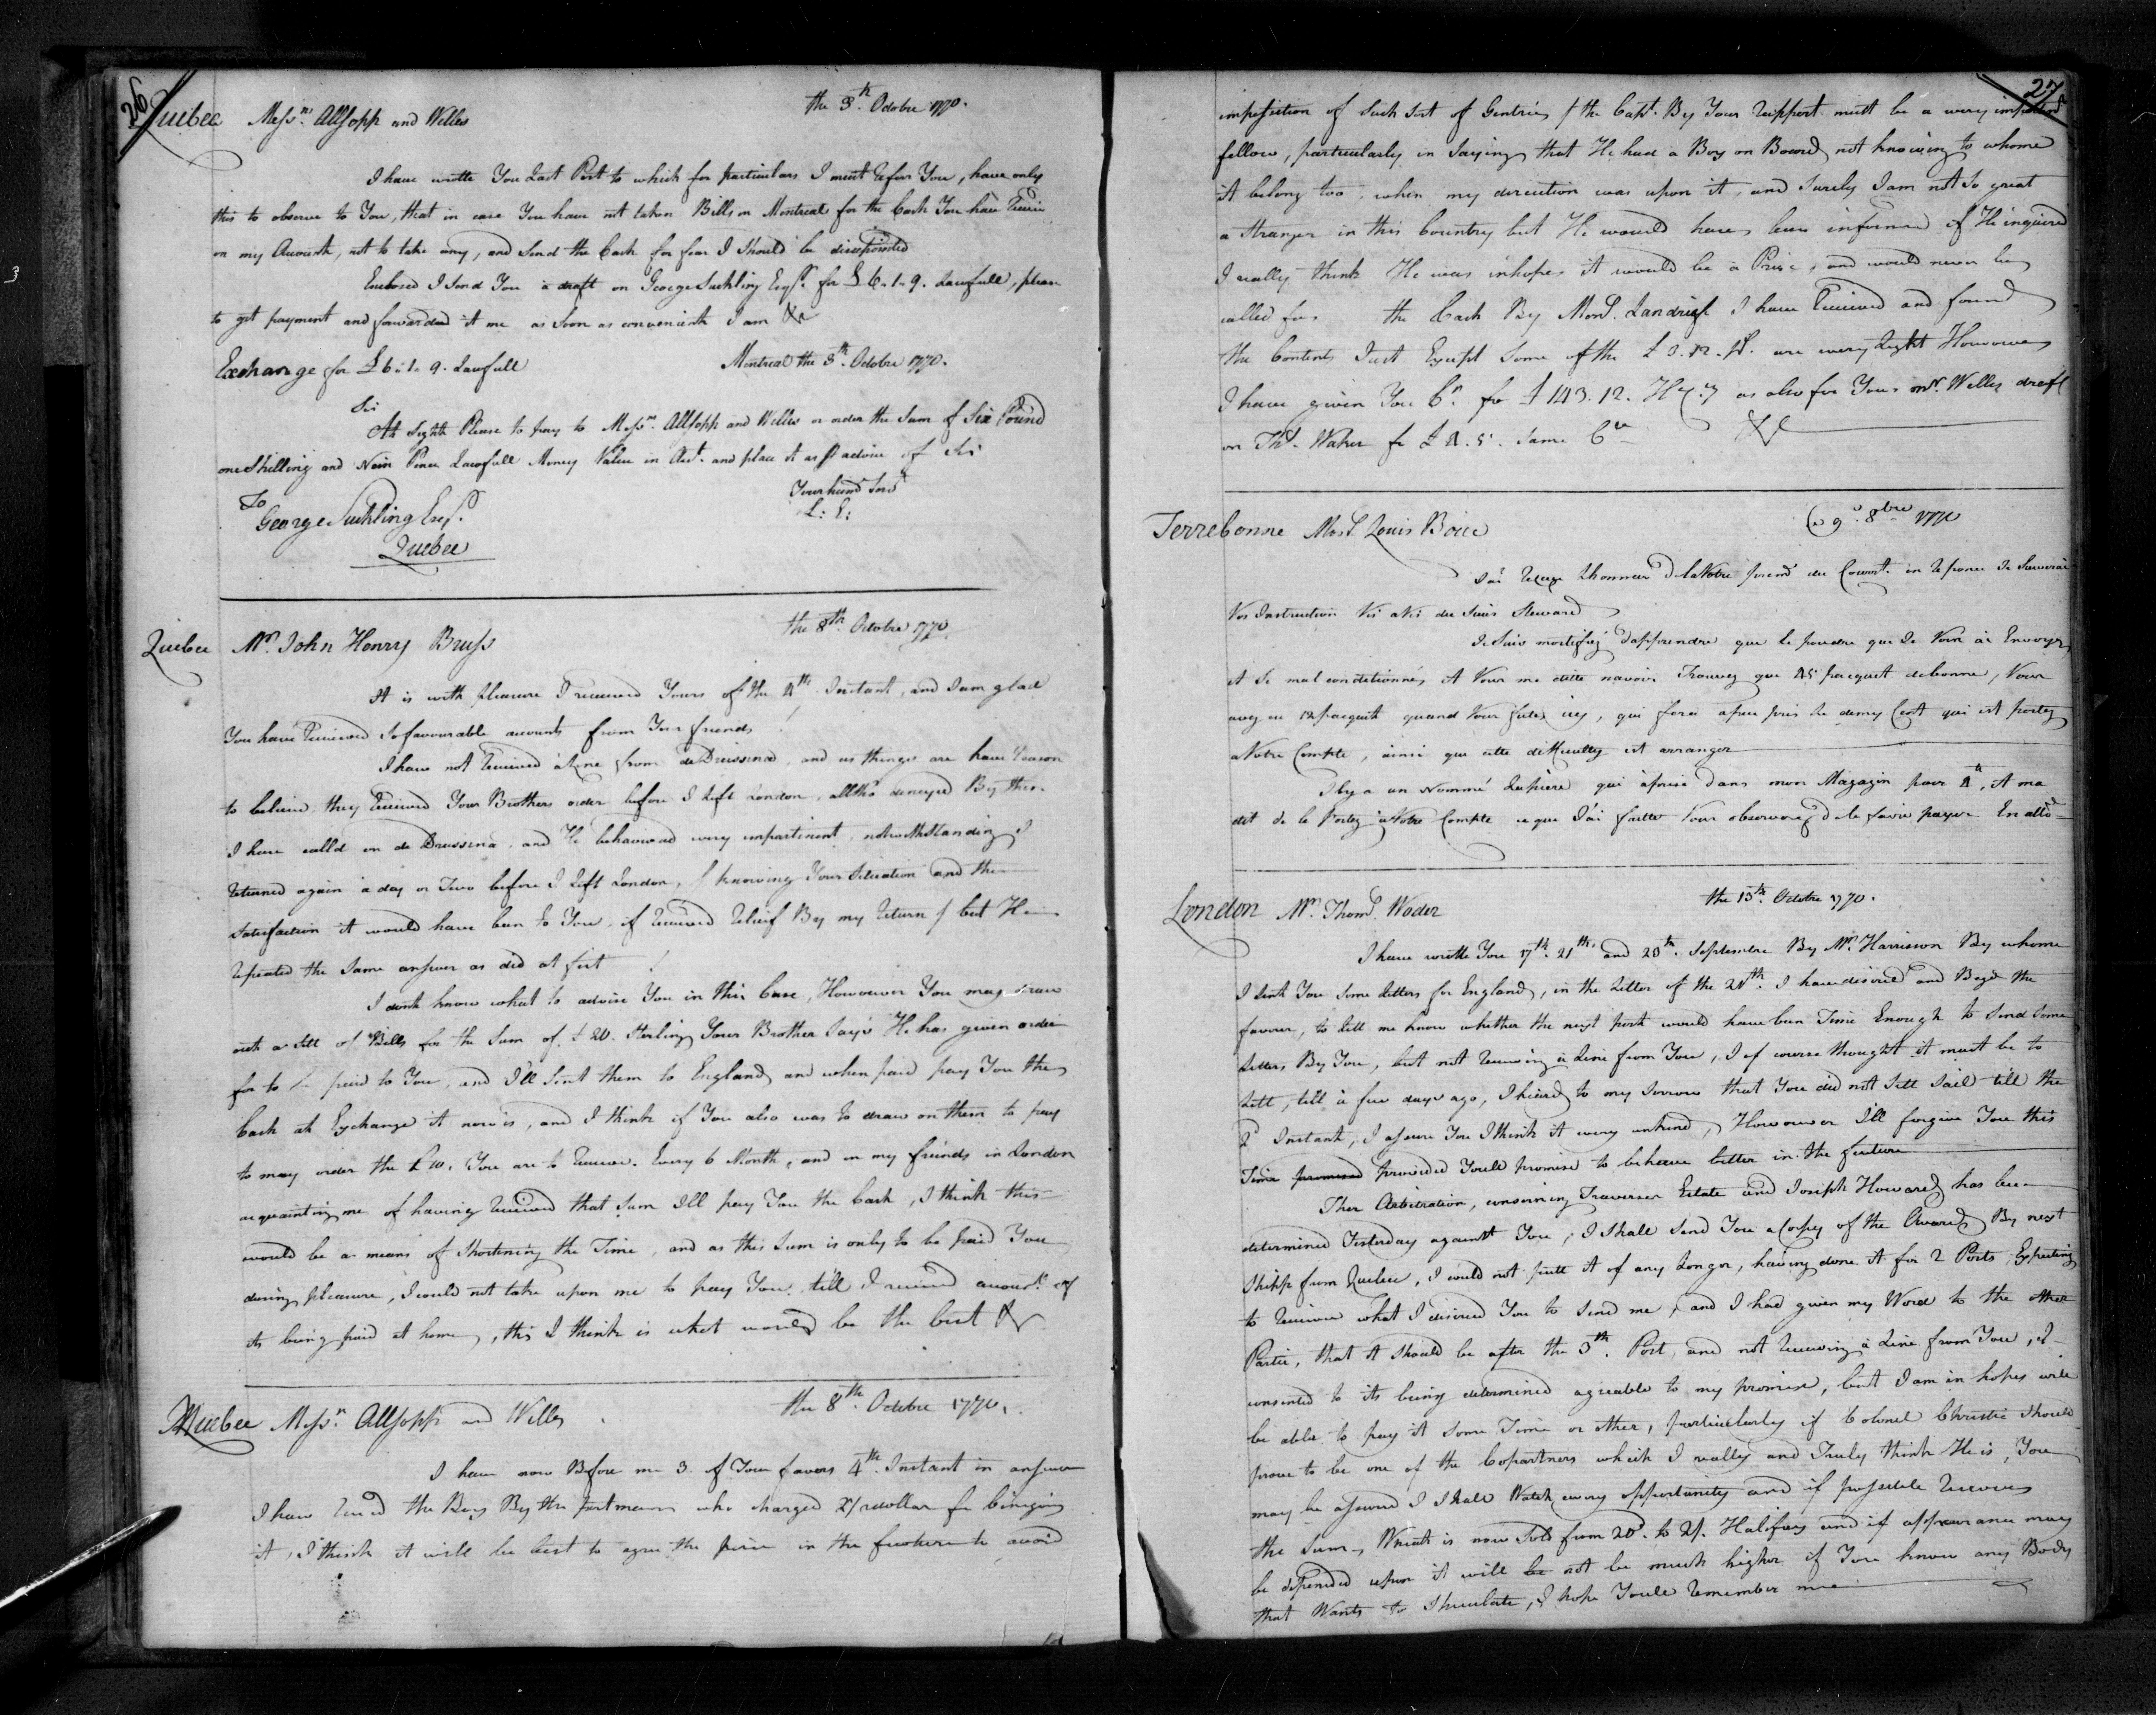 26
Quibec Messrs. Allsopp and Welles the 3th. Octobre 1770.
I have wrotte You Last Post to which for particulars I must Refer You, have only
this to observe to You, that in case You have not taken Bills on Montreal for the Cash You have Receiv
on my Account, not to take any, and Send the Cash for fear I Should be disapointed
Enclosed I Send You a draft on George Suckling Esqr. for £ 6.1.9. Lawfull, please
to get payment and forwarded it me as Soon as convenient I am &c
Exchange for £ 6:1.9. Lawfull Montreal the 3th. Octobre 1770.
Sir
At Sight Please to pay to Messrs. Allsopp and Welles or order the Sum of Six Pound
one Shilling and Nein Pence Lawfull Money Value in Acct. and place it as pr advice of Sir
To Your humd Servt
George Suckling Esqr. L: E:
Quebec
Quebec Mr. John Henry Bruss the 8th. Octobre 1770.
It is with pleasure I received Yours of the 4th. Instant, and I am glad
You have Received So favourable accounts from Your friends
I have not Received a Line from de Drussina, and as things are have Reason
to believe they Received Your Brothers order before I Left London, alltho denayed By them
I have call'd on de Drussina, and He behaved very impartinent, notwithstanding I
Returned again a day or Two before I Left London, / knowing Your Situation and the
Satisfaction it would have ben to You, if Received Relief By my Return / but He
Repeated the Same answer as did at first
I dont know what to advise You in this Case, However You may draw
out a Sett of Bills for the Sum of £ 20. Sterling Your Brother Says He has given order
for to be paid to You, and I'll Sent them to England and when paid pay You the
Cash at Exchange it now is, and I think if You also was to draw on them to pay
to may order the £ 10. You are to Receive. Every 6 Month, and on my freinds in London
acquainting me of having Received that Sum I'll pay You the Cash, I think this
would be a means of Shortening the Time, and as this Sum is only to be paid You
during pleasure, I could not take upon me to pay You, till I received account of
its being paid at home, this I think is what would be the best &c
Quebec Messrs. Allsopp and Welles the 8th. Octobre 1770.
I have now Before me 3 of Your favors 4th. Instant in answer
I have Recd the Box By the Post man who charged dollar for bringing
it, I think it will be best to agree the price in the future to avoid
27
imposition of Such Sort of Gentries / the Capt. By Your Rapport must be a very impudent
fellow, particularly in Saying that He had a Box on Board not knowing to whome
it belong too, when my direction was upon it, and Surely I am not So great
a Stranger in this Country but He would have been informed if He inquired
I really think He was in hopes it would be a Prize, and would never be
called for the Cash By Monsr. Landrief I have Received and found
the Contents Just Except Some of the £ 3.12. are very Light However
I have given You Cr. for £ 143.12. as also for Your Mr. Welles draft
on Thos. Walker for £ Same Cy &c
Terrebonne Monsr. Louis Boue Ce 9e. 8bre 1770
J'ai Reçeu L'honneur de la Votre du Courant. en Reponce Je Suivrai
Vos Instruction Vis a Vis du Steward
Je Suis mortifiéz d'apprendre que le poudre que Je Vous ai Envoyez
et Si mal conditionnés et Vous me ditte navoir Trouvez que pacquet de bonne, Vous
avez eu 12 pacquets quand Vous futes icy, qui fera apeu pris Le demy Cent qui est portez
a Votre Compte, ainsi que cette difficultey est arranger
Il y a un Nommé Lapiere qui a prise dans mon Magazin pour, et ma
dit de le Portez a Votre Compte ce que J'ai faitte Vous observerez de le faire payer
London Mr. Thoms. Woder the 15th. Octobre 1770.
I have wrotte You 17th. 21th. and 25th. Septembre By Mr. Harrison By whome
I Sent You Some Letters for England, in the Letter of the I have desired and Beg'd the
favour, to Lett me know whether the next post would have ben Time Enough to Send Some
Letters By You, but not Receiving a Line from You, I of course thought it must be to
Lett, till a few days ago, I heard to my Sorrow that You did not Sett Sail till the
2d Instant, I assure You I think it very unkind, However I'll forgive You this
Time promised provided Youll promise to behave better in the future
Ther Arbitration, conserning Traversier Estate and Joseph Howard, has been
determined Yesterday against You; I Shall Send You a Copy of the Award By next
Shipp from Quebec, I could not putt it of any Longer, having done it for 2 Posts, Expecting
to Receive what I desired You to Send me, and I had given my Word to the other
Partie, that it should be after the 3th. Post, and not Receiving a Line from You, I
consented to its being determined agreable to my promise, but I am in hopes will
be able to pay it Some Time or other, particularly if Colonel Christie Should
prove to be one of the Copartners which I really and Truly think He is, You
may be assured I Shall Watch every opportunity and if possible Recover
the Sum, Wheat is now Sold from 20d. to 2/. Halifax and if appearance may
be depended upon it will be not be much higher if You know any Body
that Wants to Speculate, I hope Youll Remember me